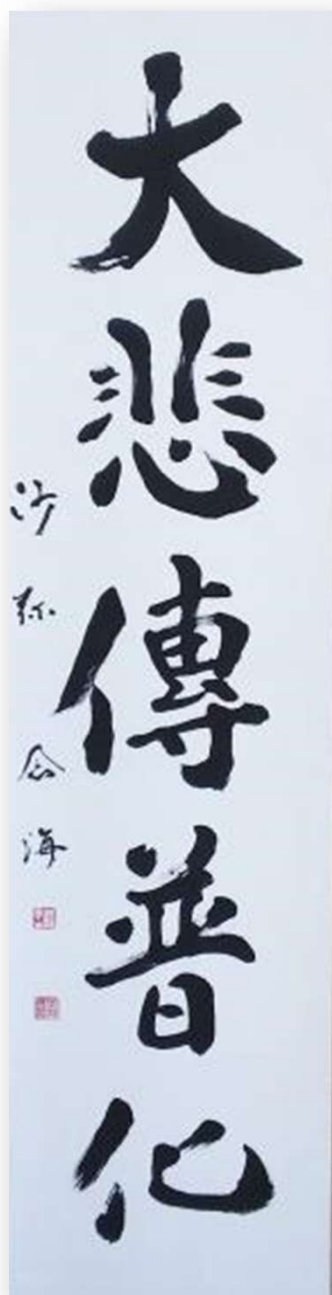 大悲傳普化
沙弥 念海